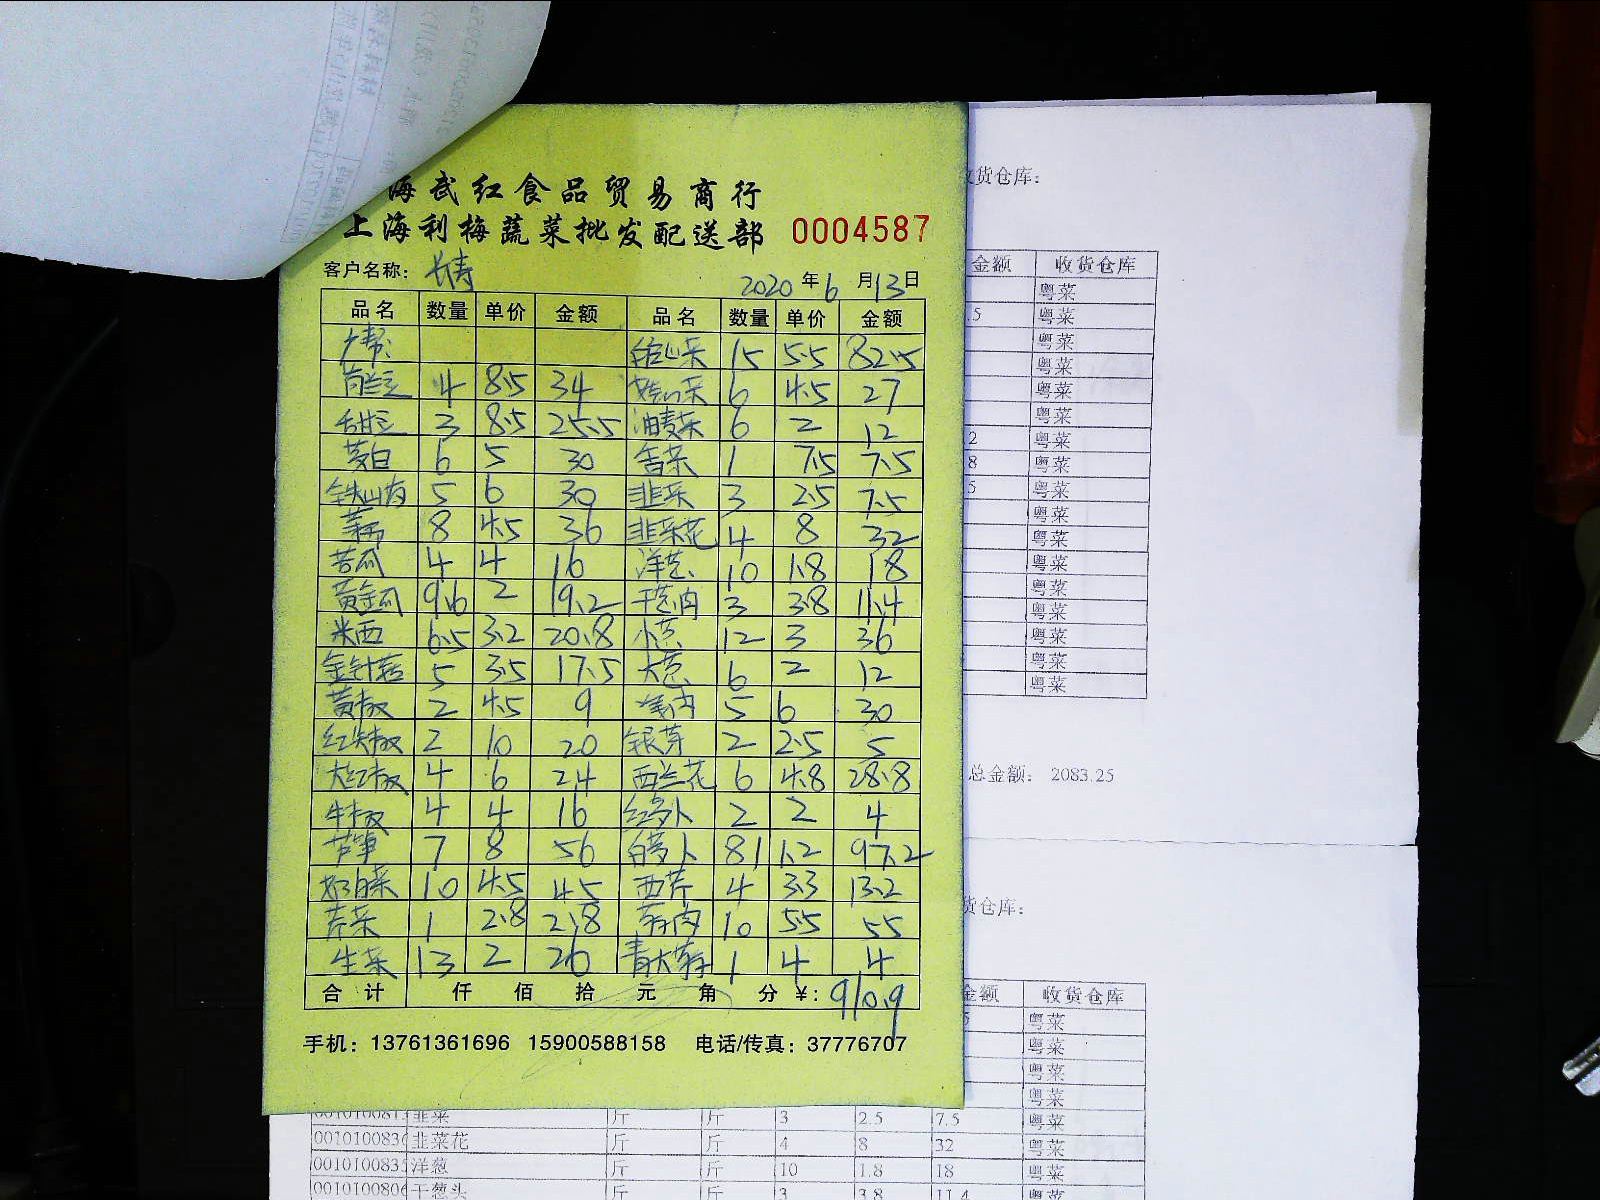 海武红食品贸易商行
上海利梅蔬菜批发配送部 0004587
客户名称: 长寿 2020 年 6 月 13 日
品名 数量 单价 金额 品名 数量 单价 金额
15 5.5 82.5
荷兰豆 4 8.5 34 6 4.5 27
甜豆 3 8.5 25.5 油麦菜 6 2 12
茭白 6 5 30 1 7.5 7.5
铁山药 5 6 30 韭菜 3 2.5 7.5
8 4.5 36 韭菜花 4 8 32
苦瓜 4 4 16 洋葱 10 1.8 18
黄金瓜 9.6 2 19.2 干葱肉 3 3.8 11.4
米西 6.5 3.2 20.8 小葱 12 3 36
金针菇 5 3.5 17.5 大葱 6 2 12
黄椒 2 4.5 9 5 6 30
红尖椒 2 10 20 银芽 2 2.5 5
大红椒 4 6 24 西兰花 6 4.8 28.8
牛椒 4 4 16 红萝卜 2 2 4
芦笋 7 8 56 白萝卜 81 1.2 97.2
奶白菜 10 4.5 45 西芹 4 3.3 13.2
芹菜 1 2.8 2.8 蒜肉 10 5.5 55
生菜 13 2 26 青大蒜 1 4 4
合计 仟 佰 拾 元 角 分 ¥: 910.9
手机: 13761361696 15900588158 电话/传真: 37776707
收货仓库:
金额 收货仓库
粤菜
.5 粤菜
粤菜
粤菜
粤菜
粤菜
2 粤菜
8 粤菜
5 粤菜
粤菜
粤菜
粤菜
粤菜
粤菜
粤菜
粤菜
粤菜
总金额: 2083.25
货仓库:
金额 收货仓库
5 粤菜
粤菜
粤菜
粤菜
韭菜 斤 斤 3 2.5 7.5 粤菜
0010100830 韭菜花 斤 斤 4 8 32 粤菜
001010083 洋葱 斤 斤 10 1.8 18 粤菜
001010080 干葱头 斤 斤 3 3.8 11.4 粤菜